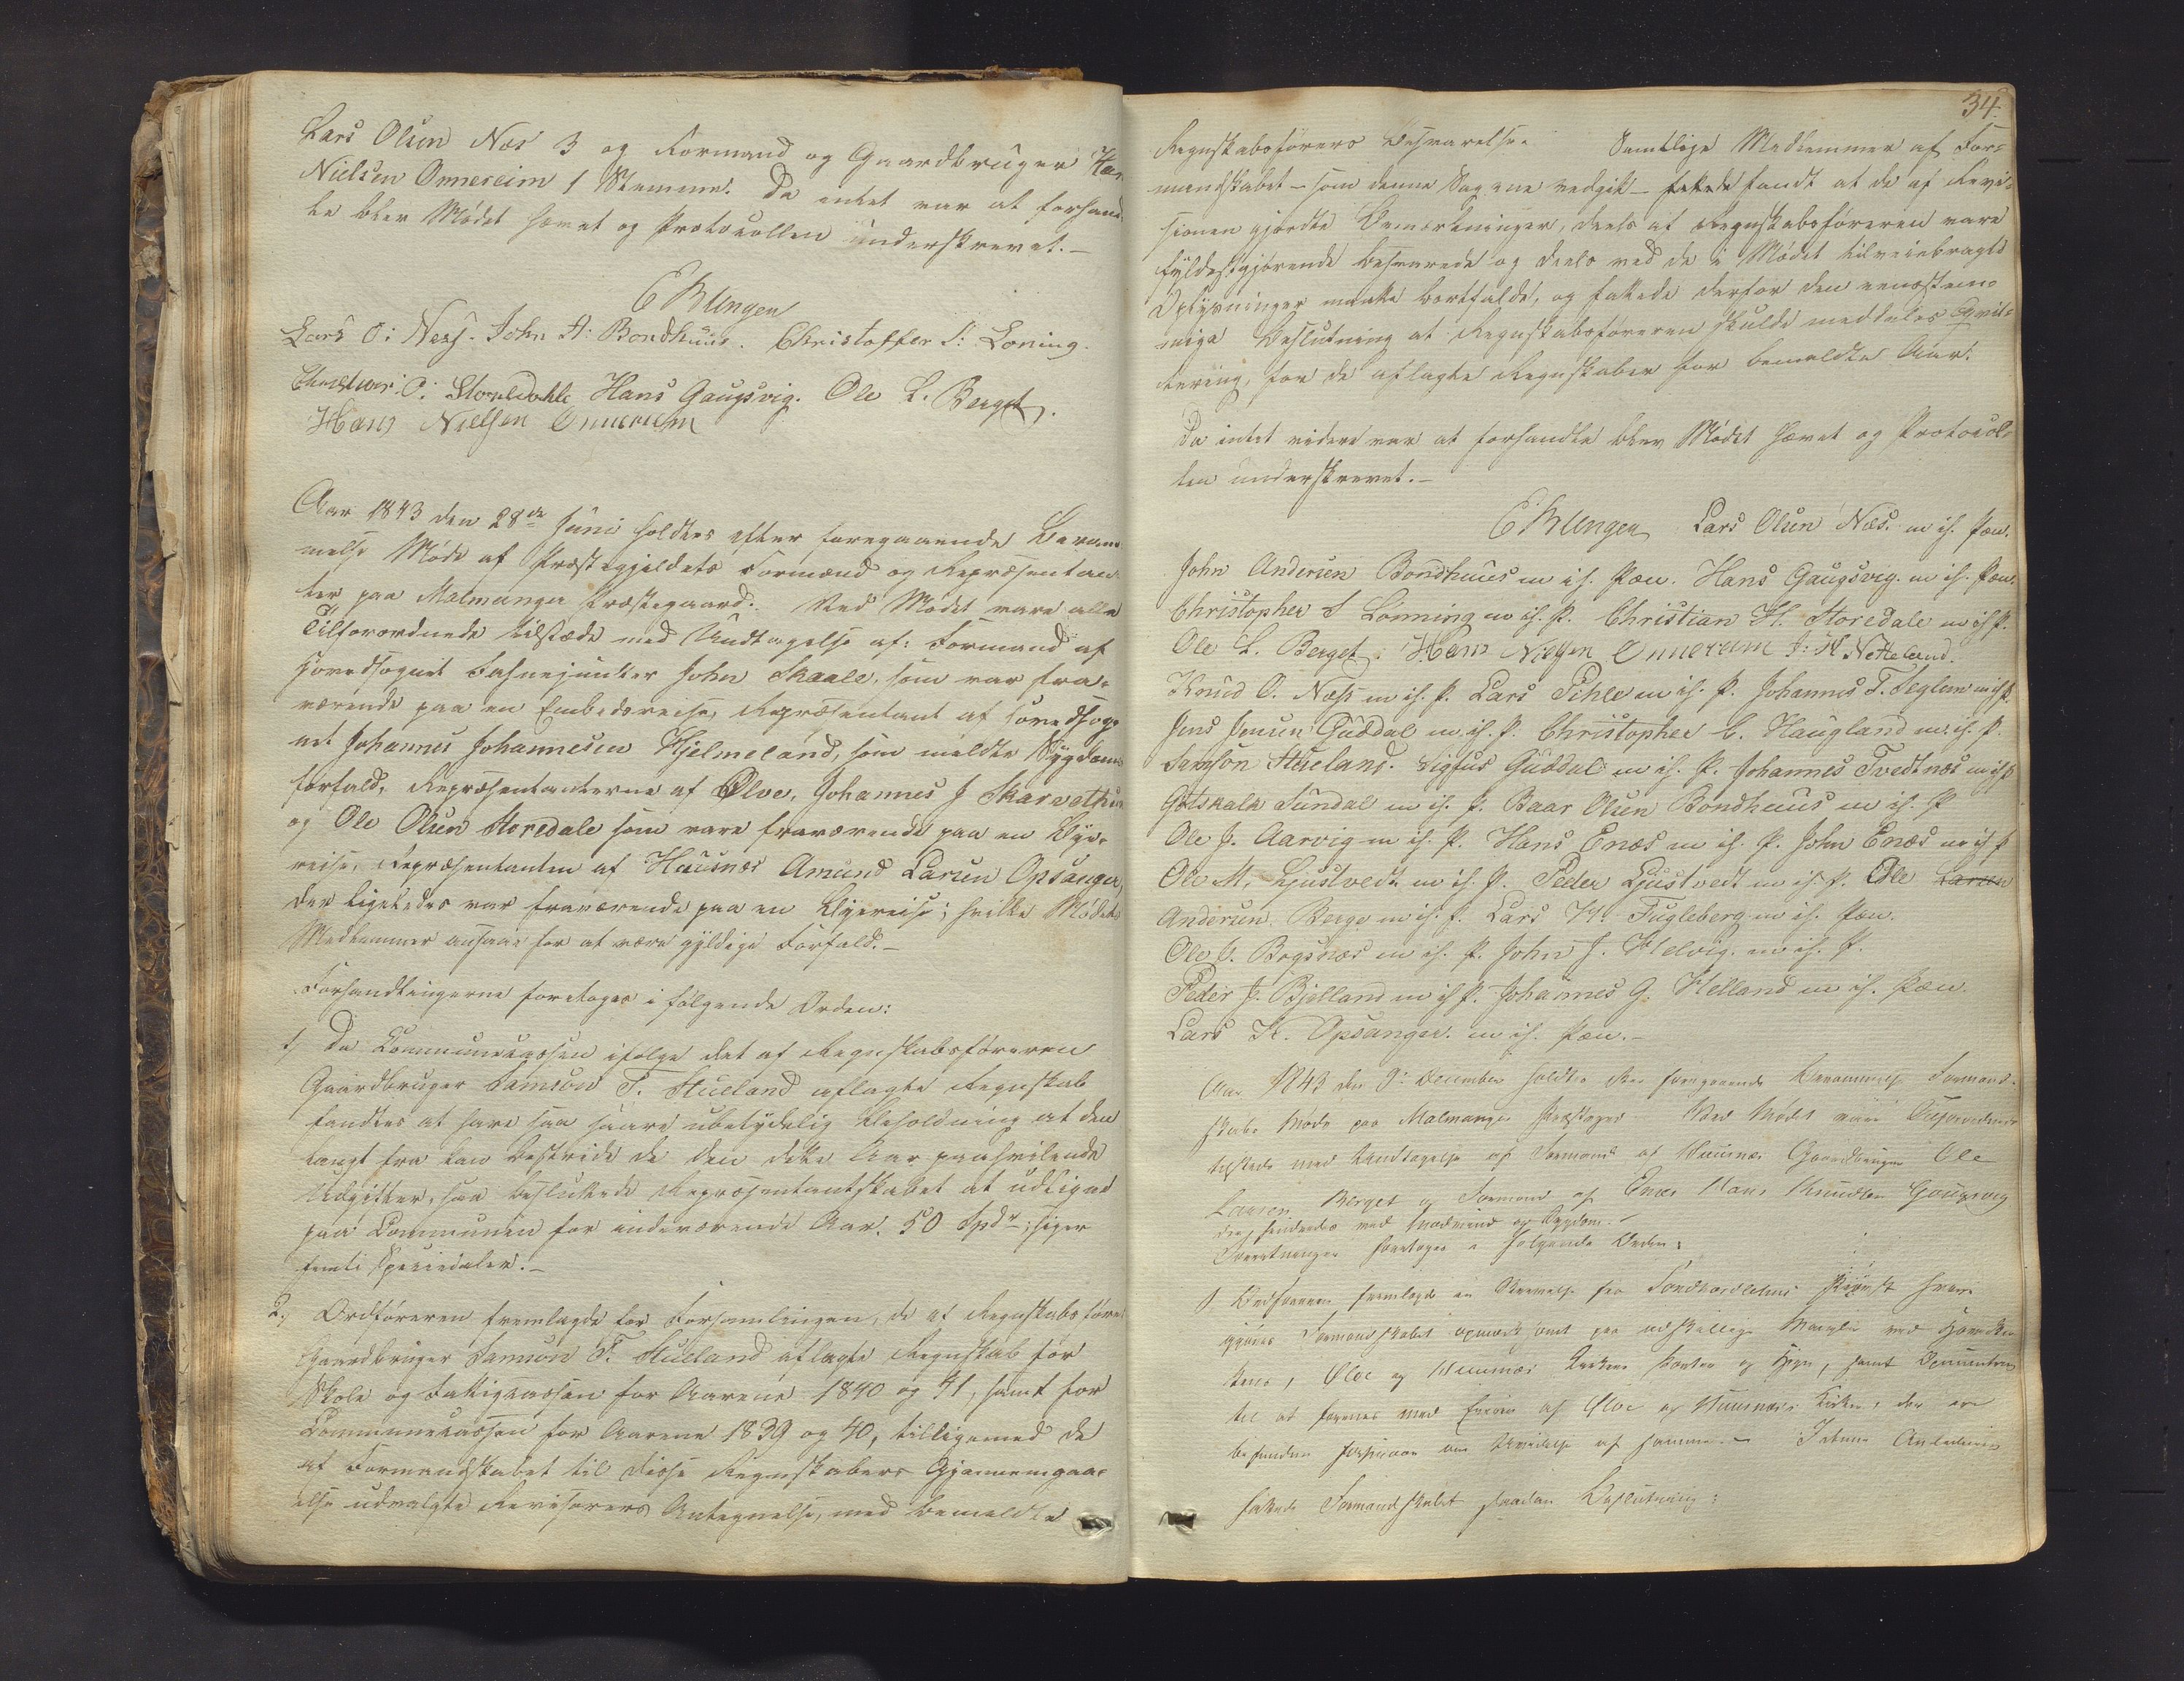 Lars Olsen Næs 3 og Formand og Gaardbruger Han
Nielsen Onnereim 1 Stemme. Da intet var at forhand
le blev Mødet hævet og Protocollen underskrevet.-
E Bungen
Lars O: Næss. John A: Bondhuus. Christoffer S: Loning.
O: Storedahle Hans Gaugsvig. Ole L. Berget.
Hans Nielsen Onnereim
Aar 1843 den 28de Juni holdtes efter foregaaende Beram
melse Møde af Præstegjeldets Formænd og Repræsentan
ter paa Malmanger Præstegaard. Ved Mødet vare alle
Tilforordnede tilstæde med Undtagelse af: Formand af
Hovedsognet Fahnejunker John Skaale, som var fra-
værende paa en Embedsreise, Repræsentant af Hovedsog-
net Johannes Johannesen Hjelmeland, som meldte Sygdoms
forfald, Repræsentanterne af Ølve, Johannes J Skarvathun
og Ole Olsen Storedale som vare fraværende paa en Bye-
reise, Repræsentanten af Huusnæs Amund Larsen Opsanger,
der ligeledes var fraværende paa en Byereise; hvilke Mødets
Medlemmer ansaae for at være gyldige Forfald.-
Forhandlingerne foretoges i følgende Orden:
1, Da Communecassen ifølge det af Regnskabsføreren
Gaardbruger Samson T. Stueland aflagte Regnskab
fandtes at have saa saare ubetydelig Beholdning at den
langt fra kan bestride de den dette Aar paahvilende
Udgifter, saa besluttede Repræsentantskabet at udligne
paa Communen for indeværende Aar. 50 Spdr: siger
femti Speciedaler.-
2, Ordføreren fremlagde for Forsamlingen, de af Regnskabsføre
Gaardbruger Samson T. Stueland aflagte Regnskab for
Skole og Fattigcassen for Aarene 1840 og 41, samt for
Communecassen for Aarene 1839 og 40, tilligemed de
af Formandskabet til disse Regnskabers Gjennemgaa-
else udvalgte Revisorers Antegnelse, med bemeldte
34.
Regnskabsførers Besvarelse. Samtlige Medlemmer af For-
mandskabet - som denne Sag ene vedgik - fattede fandt at de af Revi-
sionen gjordte Bemærkninger, deels af Regnskabsføreren vare
fyldestgjørende besvarede og deels ved de i Mødet tilveiebragte
Oplysninger maatte bortfalde, og fattede derfor den eenstem-
mige Beslutning at Regnskabsføreren skulde meddeles Qvit-
tering, for de aflagte Regnskaber for bemeldte Aar.
Da intet videre var at forhandle blev Mødet hævet og Protocol-
len underskrevet.-
E Bungen Lars Olsen Næs. m ih. Pæn.
John Andersen Bondhuus m ih. Pæn. Hans Gaugsvig. m ih. Pæn.
Christopher S Lønning m ih. P. Christian H. Storedale m ih P.
Ole L. Berget. Hans Nielsen Onnereim I: H Netteland.
Knud O. Næss m ih. P. Lars Pihle m ih. P. Johannes T. Teglem m ih P.
Jens Jensen Guddal m. ih. P. Christopher C. Haugland m. ih. P.
Samson Stueland. Sigfus Guddal m ih. P. Johannes Tvedtnæs m ih P
Gotskalk Sundal m ih. P. Baar Olsen Bondhuus m ih. P
Ole J. Aarvig m ih. P. Hans Enæs m ih. P. John Enæs m ih P
Ole M. Ljustvedt m ih. P. Peder Ljustvedt m ih. P. Ole Larsen
Andersen Berge m ih. P. Lars H. Fugleberg m ih. Pæn.
Ole O. Bogsnæs m ih. P. John J. Helvig. m ih. P.
Peder J. Bjelland m ih P. Johannes G. Helland m ih. Pæn.
Lars K. Opsanger. m ih. Pæn.-
Aar 1843 den 9: December holdtes efter foregaaende Berammelse Formand-
skabs Møde paa Malmanger Præstegrd Ved Mødet vare Tilforordnede
tilstede med Undtagelse af Formand af Huusnæs Gaardbruger Ole
Larsen Berget og Formand af Enæs Hans Knudsen Gaugsvig
der hindredes ved Modvind og Sygdom.-
foretoges i følgende Orden:
1 Ordføreren fremlagde en Skrivelse fra Søndhordlehns Provst hvori
gjøres Formandskabet opmærksomt paa adskillige Mangler ved Hovedkir-
kens, Ølve og Huusnæs Kirkers og Hegn, samt
til at forenes med af Ølve og Huusnæs Kirker, der ere
befundne om Udvidelse af samme.- I denne Anledning
fattede Formandskabet saadan Beslutning: